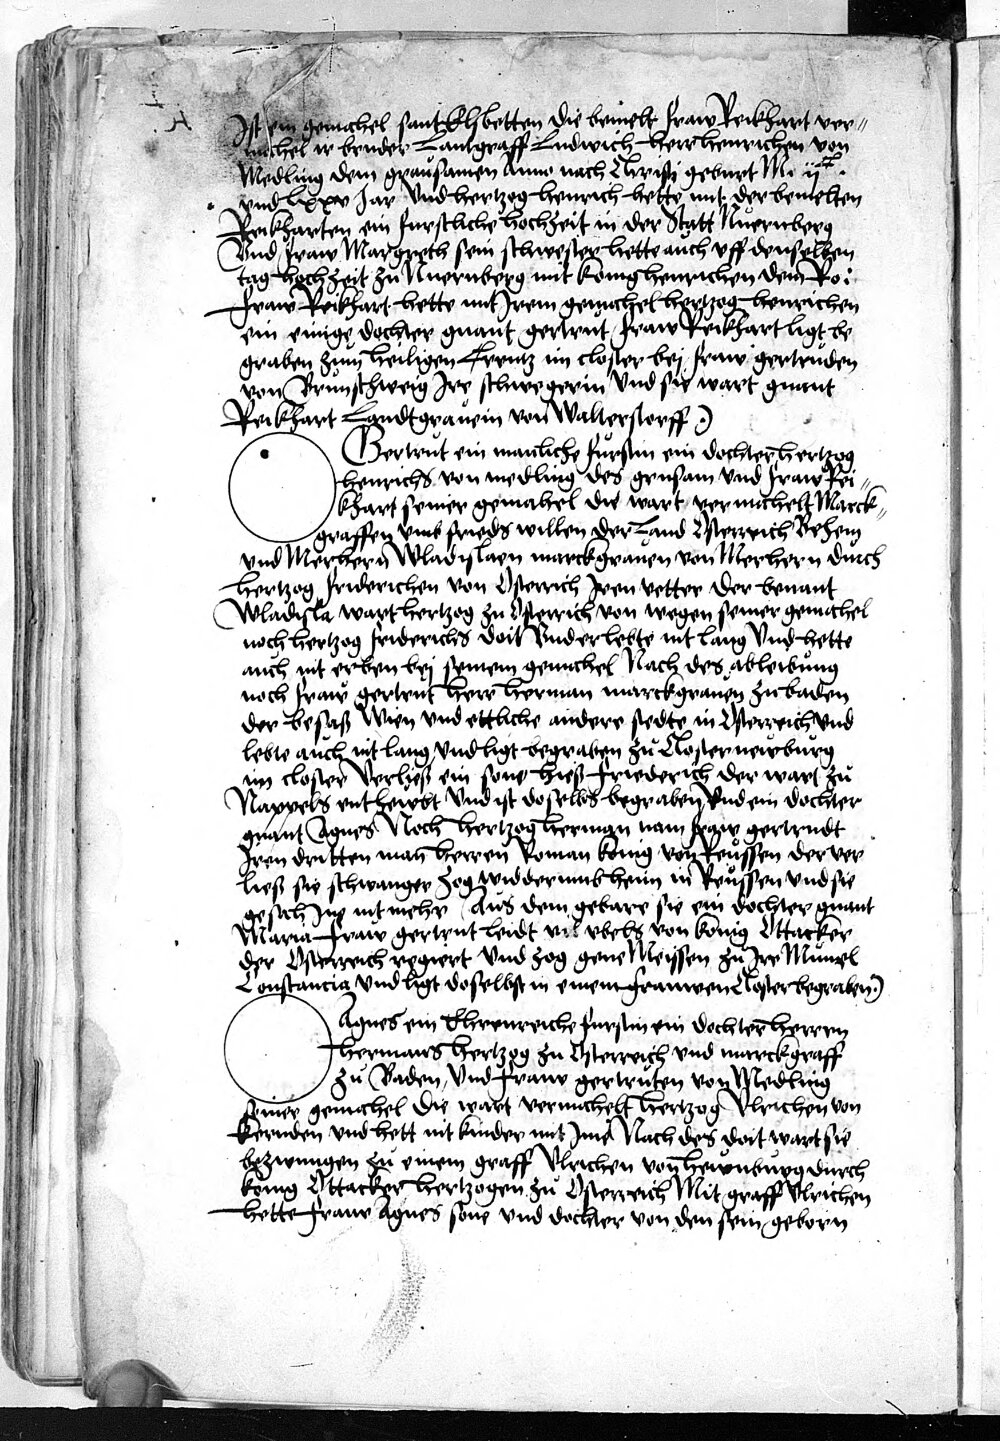 A
Ist ein gemahel sant Elsbetten die benielt fraw Reikhart ver„
michel ir bruder Lantgraff Ludwich herr henrichen von
Medling dem grausamen Anno nach Christi geburt M. ijᶜ.
vnd lxxv Jar Vnd hertzog henrich hette mit der benielten
Reikharten ein furstliche hochzeit in der Statt Nuernberg
Vnd fraw Margreth sein schwester hette auch vff denselben
tag hochzeit zu Nuernberg mit konig henrichen dem Ro:
fraw Reikhart hette mit Irem gemahel hertzog henrichen
ein einige dochter gnant gertrut fraw Reikhart ligt be
graben zum heiligen Creutz im closter bej fraw gertruden
von Brunschweig Ire schwegerin Vnd sie wart gnant
Reikhart Landtgrauein von Walterstorff
Gertrut ein manliche furstin ein dochter hertzog
henrichs von medling des grusam vnd fraw Rei„
khart seiner gemahel die wart vermichelt Marck„
graffen vmb frieds willen der Land Osterreich Behem
vnd Merhern Wladislaen marckgrauen von Merhern durch
hertzog friderichen von Osterrich Iren vetter der benant
Wladisla wart hertzog zu Osterrich von wegen seiner gemahel
noch hertzog friderichs doit Vnd er lebte nit lang Vnd hette
auch nit erben bej seinem gemahel Nach des ableibung
noch fraw gertrut herr herman marckgrauen zu baden
der besaß Wien vnd ettliche andere stedte in Osterreich vnd
lebte auch nit lang vnd ligt begraben zu Closternewburg
im closter Verließ ein sone hieß friederich der wart zu
Nappels enthewbt Vnd ist doselbs begraben Vnd ein dochter
gnant Agnes Noch hertzog herman nam fraw gertrudt
Iren dritten man herren Roman konig von Reussen der ver
ließ sie schwanger zog widderumb heim in Reussen vnd sie
gesach Ine nit mehr Aus dem gebare sie ein dochter gnant
Maria fraw gertrut leidt vil vbels von konig Ottacker
der Osterreich regiert Vnd zog gene Meissen zu Ire Mumel
Constancia Vnd ligt doselbst in einem frauwen Closter begraben
Agnes ein Ehrenreiche furstin ein dochter herren
hermans hertzog zu Osterreich vnd marckgraff
zu Baden Vnd fraw gertruten von Medling
seiner gemahel die wart vermichelt hertzog Vlrichen von
kernden vnd hett nit kinder mit Ime Nach des doit wart sie
bezwungen zu einem graff Vlrichen von hewnburg durch
konig Ottacker hertzogen zu Osterreich Mit graff Vlrichen
hette fraw Agnes sone vnd dochter von den sein geborn